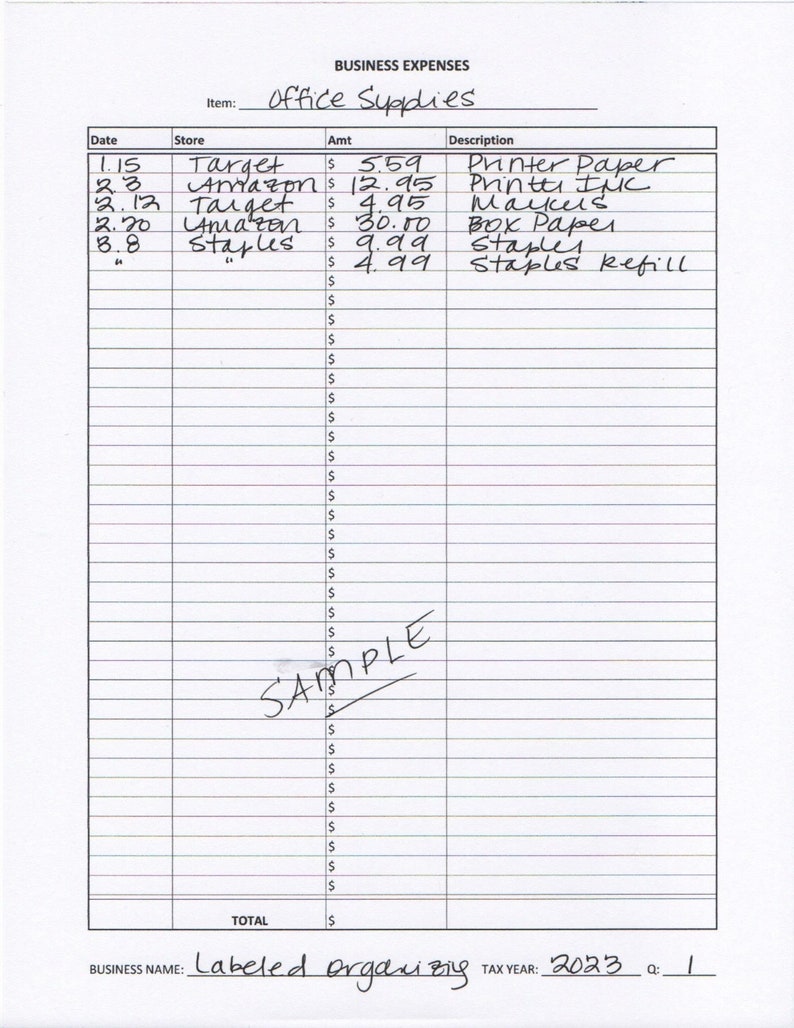 BUSINESS EXPENSES
Item: Office Supplies
Date Store Amt Description
1.15 Target $ 5.59 Printer Paper
2.3 Amazon $ 12.95 Printer Ink
2.12 Target $ 4.95 Markers
2.20 Amazon $ 30.00 Box Paper
3.8 Staples $ 9.99 Stapler
" " $ 4.99 Staples Refill
$
$
$
$
$
$
$
$
$
$
$
$
$
$
$
$
$
$
$
$
SAMPLE
$
$
$
$
$
$
$
$
$
$
$
$
TOTAL $
BUSINESS NAME: Labeled Organizing TAX YEAR: 2023 Q: 1